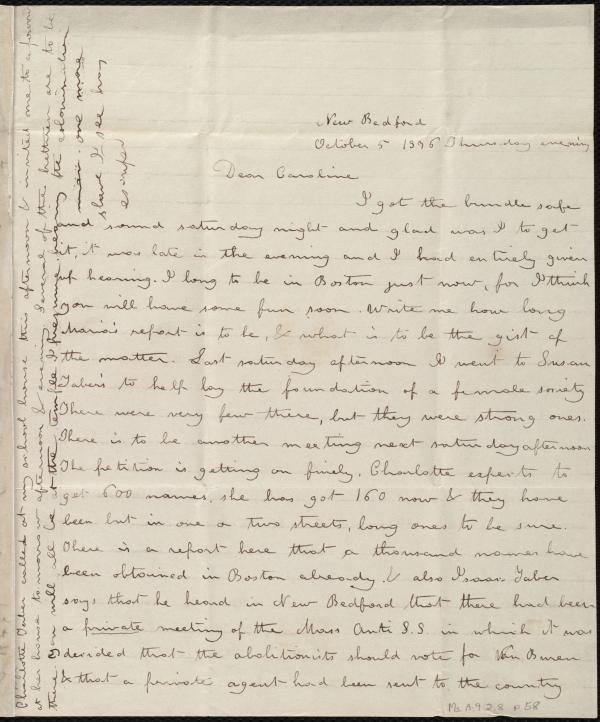 New Bedford
October 5 1836 Thursday evening
Dear Caroline
I got the bundle safe
and sound saturday night and glad was I to get
it, it was late in the evening and I had entirely given
up hearing. I long to be in Boston just now, for I think
you will have some fun soon. Write me how long
Maria's report is to be, & what is to be the gist of
the matter. Last saturday afternoon I went to Susan
Taber's to help lay the foundation of a female society
There were very few there, but they were strong ones.
There is to be another meeting next saturday afternoon
The petition is getting on finely. Charlotte expects to
get 600 names, she has got 160 now & they have
been but in one or two streets, long ones to be sure.
There is a report here that a thousand names have
been obtained in Boston already. & also Isaac Taber
says that he heard in New Bedford that there had been
a private meeting of the Mass Anti S.S. in which it was
decided that the abolitionists should vote for Van Buren
& that a private agent had been sent to the country
Charlotte Taber called at my school house this afternoon & invited me to a
at her house tomorrow afternoon & evening. Several of the brethren are to be
there
will all be at the
the colonization
one more
slave I see has
Ms.A.9.2.8 p.58